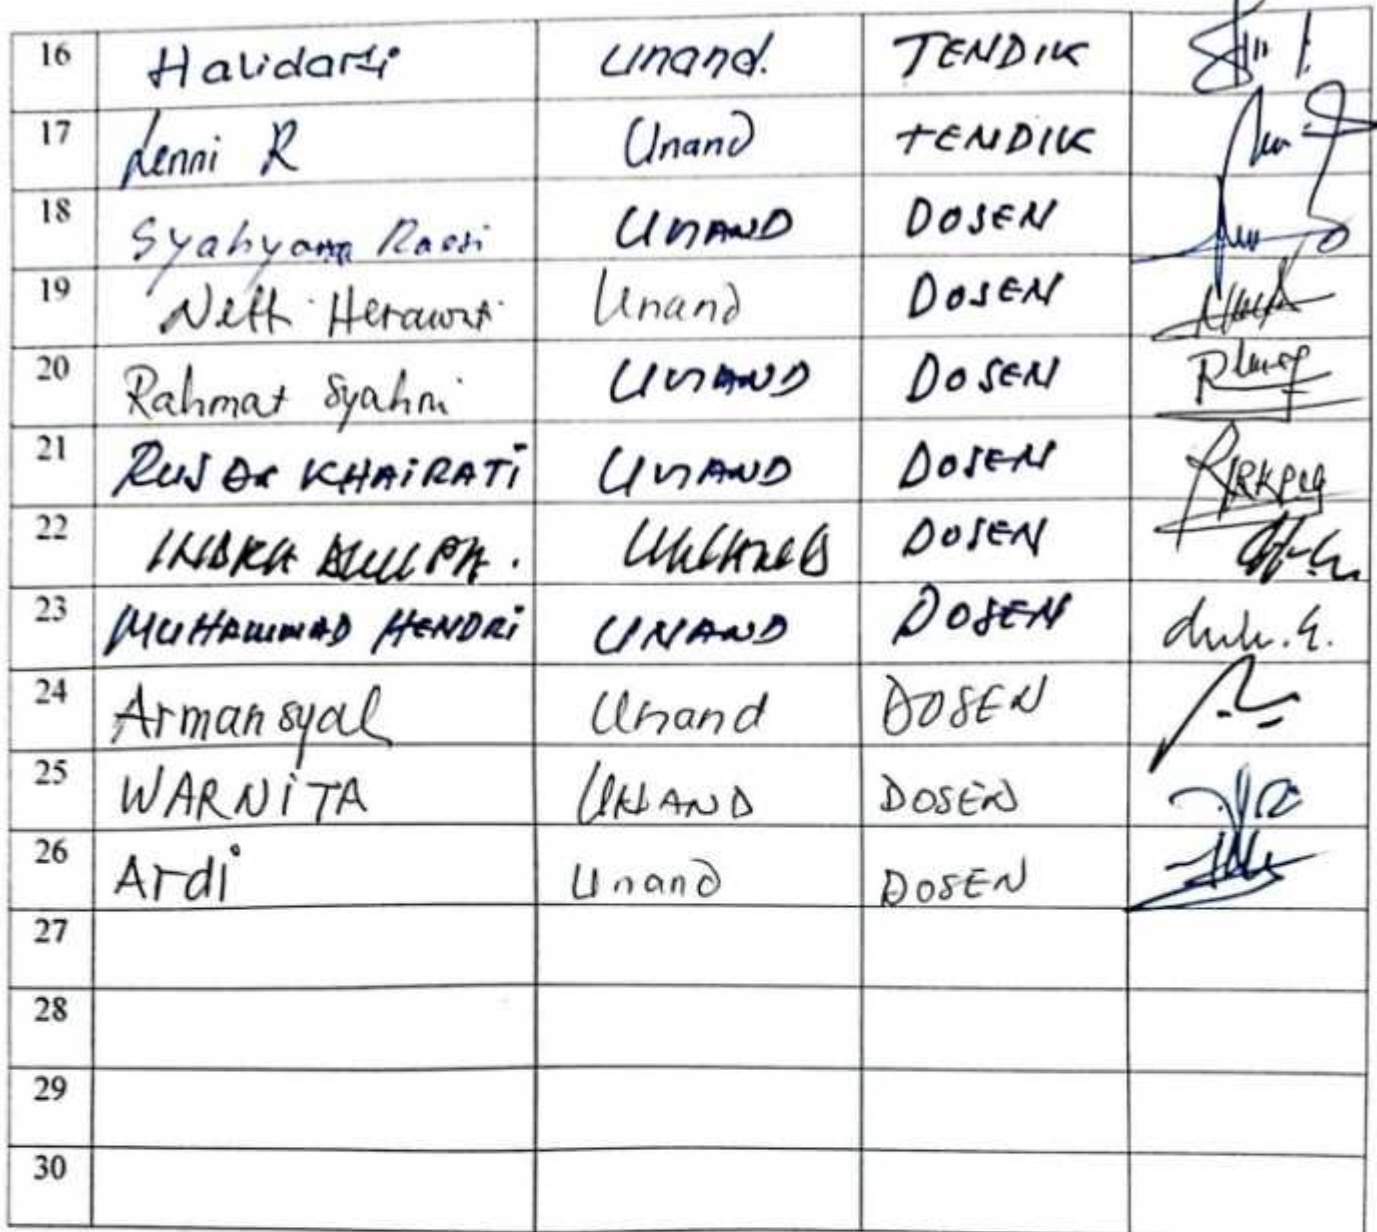 16 Halidarti Unand. TENDIK
17 Lenni R Unand TENDIK
18 Syahyana Raesi UNAND DOSEN
19 Netti Herawati Unand DOSEN
20 Rahmat Syahni UNAND DOSEN
21 RUSDA KHAIRATI UNAND DOSEN
22 DOSEN
23 MUHAMMAD HENDRI UNAND DOSEN
24 Armansyal Unand DOSEN
25 WARNITA UNAND DOSEN
26 Ardi Unand DOSEN
27
28
29
30